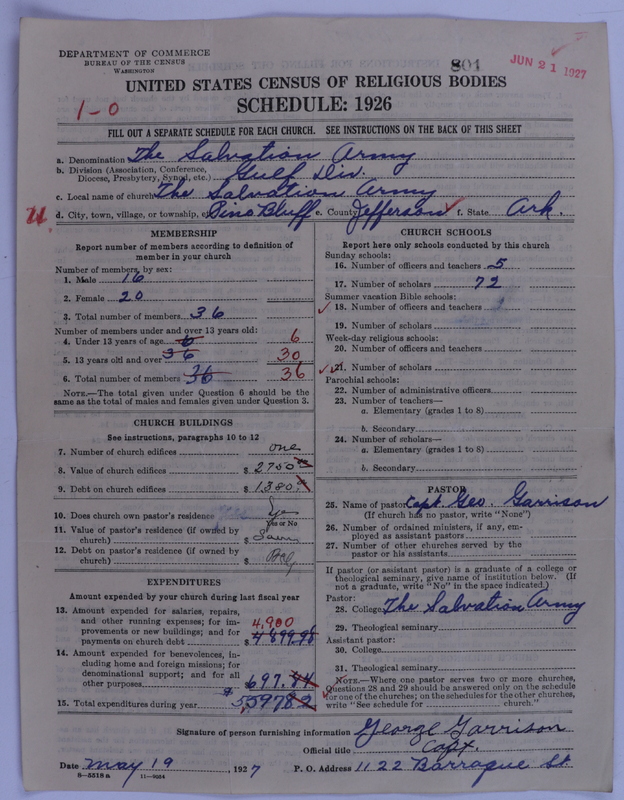 DEPARTMENT OF COMMERCE
BUREAU OF THE CENSUS
WASHINGTON
801
JUN 21 1927
UNITED STATES CENSUS OF RELIGIOUS BODIES
SCHEDULE: 1926
1-0
FILL OUT A SEPARATE SCHEDULE FOR EACH CHURCH. SEE INSTRUCTIONS ON THE BACK OF THIS SHEET
a. Denomination The Salvation Army
b. Division (Association, Conference, Diocese, Presbytery, Synod, etc.) Gulf Div.
c. Local name of church The Salvation Army
d. City, town, village, or township, etc. Pine Bluff e. County Jefferson f. State Ark.
MEMBERSHIP
Report number of members according to definition of member in your church
Number of members, by sex:
1. Male 16
2. Female 20
3. Total number of members 36
Number of members under and over 13 years old:
4. Under 13 years of age 6 6
5. 13 years old and over 36 30
6. Total number of members 36 36
NOTE.—The total given under Question 6 should be the same as the total of males and females given under Question 3.
CHURCH BUILDINGS
See instructions, paragraphs 10 to 12
7. Number of church edifices one
8. Value of church edifices $ 2750
9. Debt on church edifices $ 1380
10. Does church own pastor's residence Yes
Yes or No
11. Value of pastor's residence (if owned by church) $ Same
12. Debt on pastor's residence (if owned by church) $
EXPENDITURES
Amount expended by your church during last fiscal year
13. Amount expended for salaries, repairs, and other running expenses; for improvements or new buildings; and for payments on church debt 4,900 $ 4899.98
14. Amount expended for benevolences, including home and foreign missions; for denominational support; and for all other purposes 697.84
15. Total expenditures during year $ 5,597.82
CHURCH SCHOOLS
Report here only schools conducted by this church
Sunday schools:
16. Number of officers and teachers 5
17. Number of scholars 72
Summer vacation Bible schools:
18. Number of officers and teachers
19. Number of scholars
Week-day religious schools:
20. Number of officers and teachers
21. Number of scholars
Parochial schools:
22. Number of administrative officers
23. Number of teachers—
a. Elementary (grades 1 to 8)
b. Secondary
24. Number of scholars—
a. Elementary (grades 1 to 8)
b. Secondary
PASTOR
25. Name of pastor Capt. Geo. Garrison
(If church has no pastor, write "None")
26. Number of ordained ministers, if any, employed as assistant pastors
27. Number of other churches served by the pastor or his assistants
If pastor (or assistant pastor) is a graduate of a college or theological seminary, give name of institution below. (If not a graduate, write "No" in the space indicated.)
Pastor:
28. College The Salvation Army
29. Theological seminary
Assistant pastor:
30. College
31. Theological seminary
NOTE.—Where one pastor serves two or more churches, Questions 28 and 29 should be answered only on the schedule for one of the churches; on the schedules for the other churches, write "See schedule for church."
Signature of person furnishing information George Garrison
Official title Capt.
Date May 19, 1927 P. O. Address 1122 Barraque St
8-5518a 11-9034